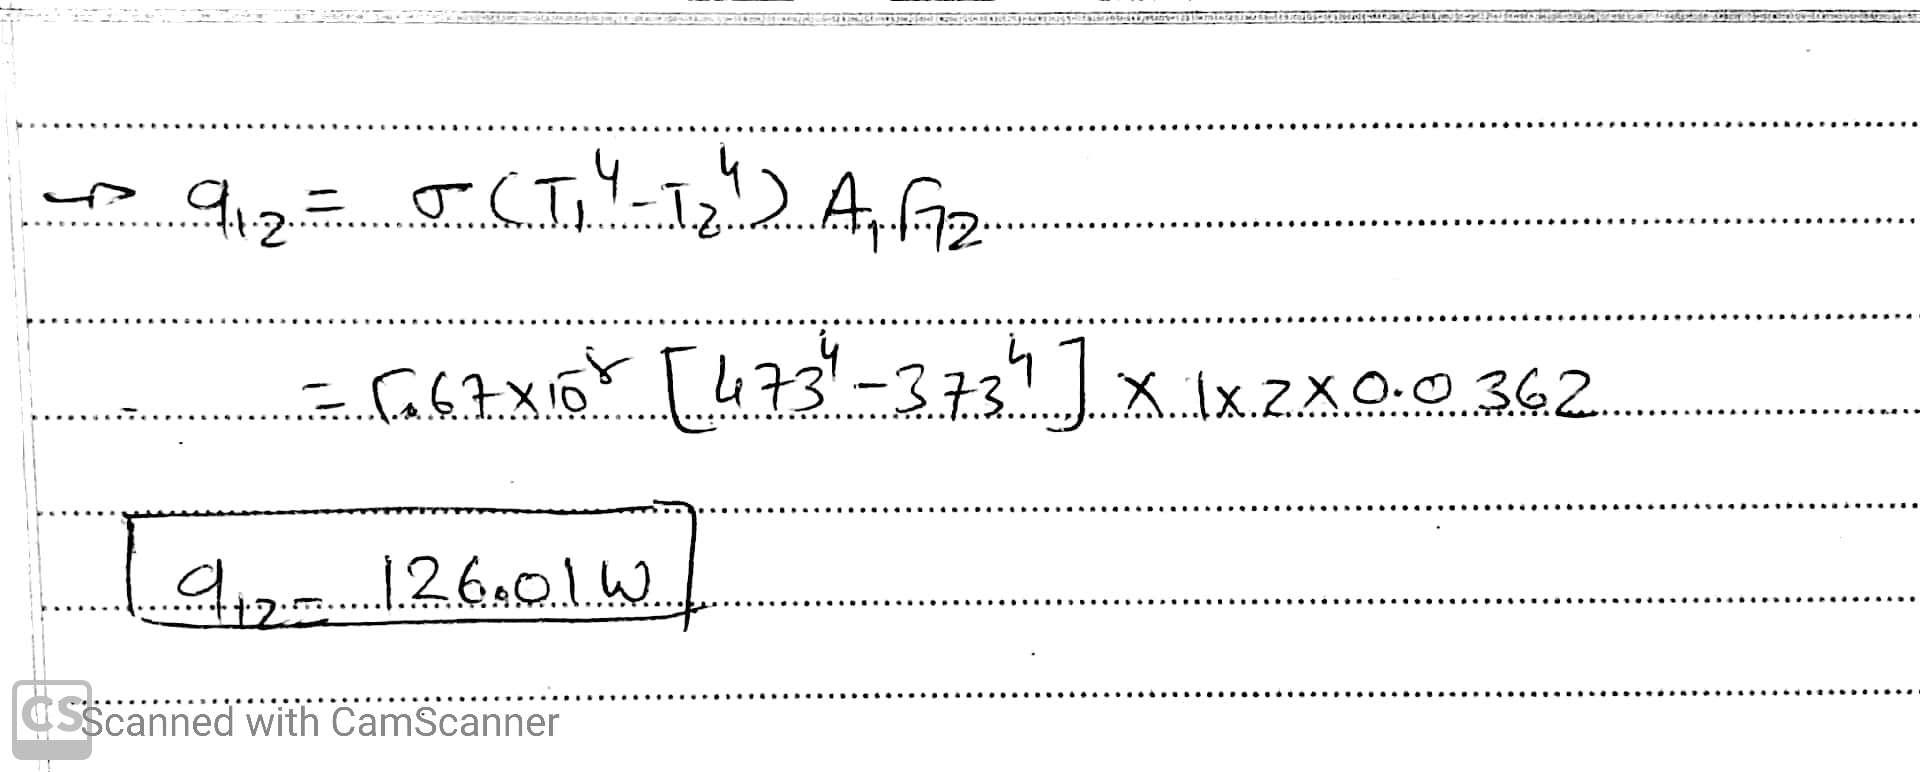 → q₁₂ = σ(T₁⁴-T₂⁴) A₁ F₁₂
= 5.67×10⁻⁸ [473⁴-373⁴] × 1×2×0.0362
q₁₂ = 126.01W
CS Scanned with CamScanner